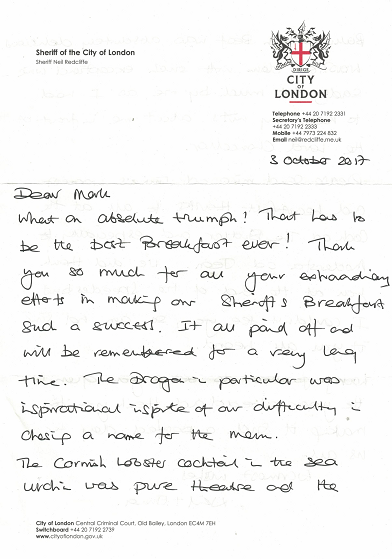 Sheriff of the City of London
Sheriff Neil Redcliffe
CITY
OF
LONDON
Telephone +44 20 7192 2331
Secretary's Telephone
+44 20 7192 2333
Mobile +44 7973 224 832
Email neil@redcliffe.me.uk
3 October 2017
Dear Mark
What an absolute triumph! That has to
be the best Breakfast ever! Thank
you so much for all your extraordinary
efforts in making our Sheriff's Breakfast
such a success. It all paid off and
will be remembered for a very long
time. The Dragon in particular was
inspirational inspite of our difficulty in
chosing a name for the menu.
The Cornish Lobster cocktail in the sea
urchin was pure theatre and the
City of London Central Criminal Court, Old Bailey, London EC4M 7EH
Switchboard +44 20 7192 2739
www.cityoflondon.gov.uk